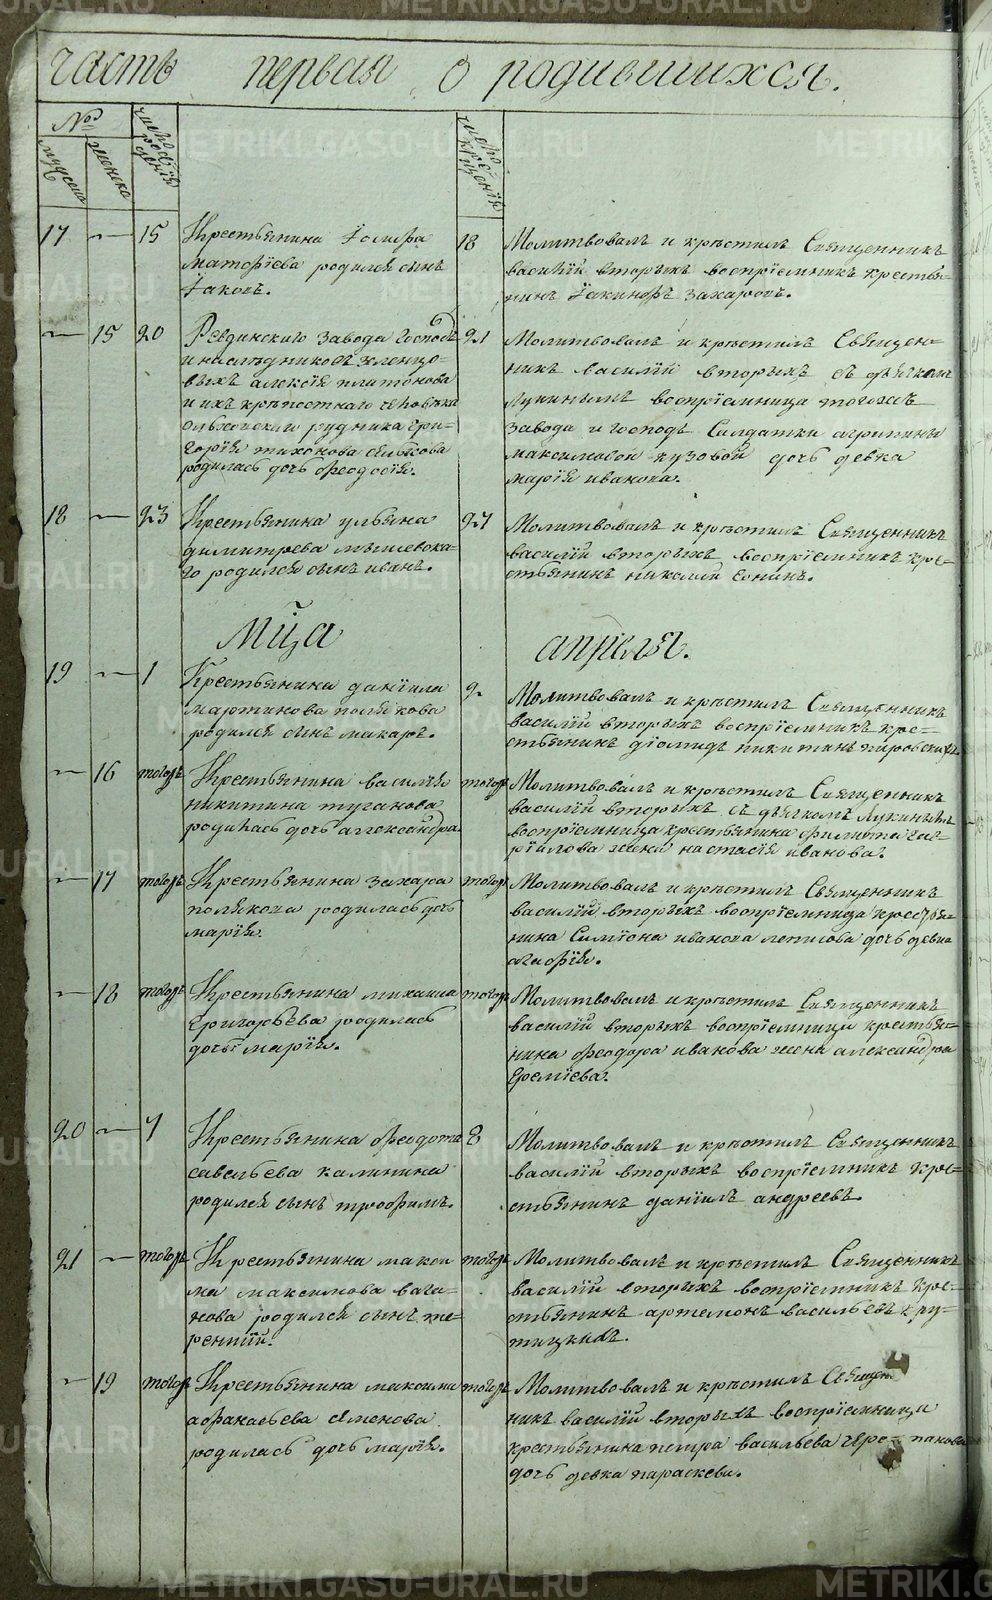 METRIKI.GASO-URAL.RU
часть первая о родившихся.
№
мужеска
женска
число рождения
число крещения
17 — 15 Крестьянина
родился сынъ
Іаковъ.
18 Молитвовалъ и крѣстилъ Священникъ
василій вторыхъ воспріемникъ крестья-
нинъ Іакинфъ Захаровъ.
— 15 20 Ревдинскаго завода Господъ
и наслѣдниковъ зеленцо-
выхъ алексія платонова
и ихъ крѣпостнаго человѣка
рудника гри-
горія тихонова
родилась дочь феодосія.
21 Молитвовалъ и крѣстилъ Священ-
никъ василій вторыхъ съ дьячкомъ
Лукинымъ воспріемница тогожъ
завода и господъ Салдатки агрипины
максимовой кузовой дочь девка
марія иванова.
18 — 23 Крестьянина ульяна
димитрева
родился сынъ иванъ.
27 Молитвовалъ и крѣстилъ Священникъ
василій вторыхъ воспріемникъ кре-
стьянинъ николай
Мца апреля.
19 — 1 Крестьянина даніила
мартинова полякова
родился сынъ макаръ.
2 Молитвовалъ и крѣстилъ Священникъ
василій вторыхъ воспріемникъ кре-
стьянинъ діомидъ никитинъ
— 16 тогожъ Крестьянина василія
никитина туганова
родилась дочь александра.
тогожъ Молитвовалъ и крѣстилъ Священникъ
василій вторыхъ съ дьячкомъ Лукинымъ
воспріемница крестьянина филипа гав-
рилова жена настасія иванова.
— 17 тогожъ Крестьянина захара
полякова родилась дочь
марія.
тогожъ Молитвовалъ и крѣстилъ Священникъ
василій вторыхъ воспріемница крестья-
нина Симіона иванова дочь девка
агафія.
— 18 тогожъ Крестьянина михаила
григорьева родилась
дочь марія.
тогожъ Молитвовалъ и крѣстилъ Священникъ
василій вторыхъ воспріемница крестья-
нина феодора иванова жена александра
Еремієва.
20 — 7 Крестьянина феодота
савельева калинина
родился сынъ трофимъ.
8 Молитвовалъ и крѣстилъ Священникъ
василій вторыхъ воспріемникъ кре-
стьянинъ даніилъ андреевъ.
21 — тогожъ Крестьянина макси
ма максимова вага-
нова родился сынъ те-
рентій.
тогожъ Молитвовалъ и крѣстилъ Священникъ
василій вторыхъ воспріемникъ кре-
стьянинъ артемонъ васильевъ кру-
тицкихъ.
— 19 тогожъ Крестьянина максима
афанасьева семенова
родилась дочь марія.
тогожъ Молитвовалъ и крѣстилъ Священ
никъ василій вторыхъ воспріемница
крестьянина петра васильева чере-панова
дочь девка параскева.
METRIKI.GASO-URAL.RU